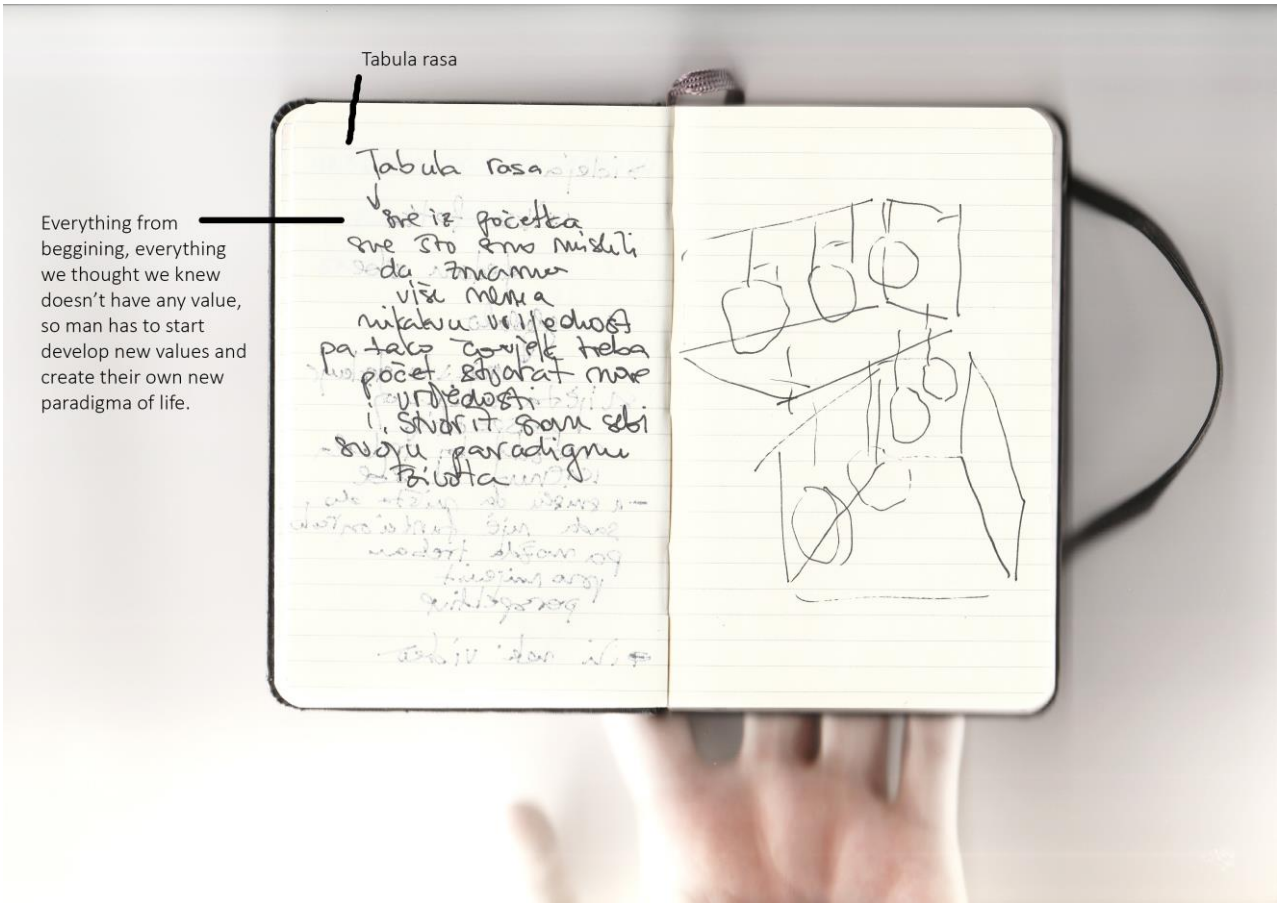 Tabula rasa
Everything from
beggining, everything
we thought we knew
doesn't have any value,
so man has to start
develop new values and
create their own new
paradigm of life.
Tabula rasa
sve iz početka
sve što smo mislili
da znamo
više nema
nikakvu vrijednost
pa tako čovjek treba
počet stvarat nove
vrijednosti
i stvorit sam sebi
svoju paradigmu
života